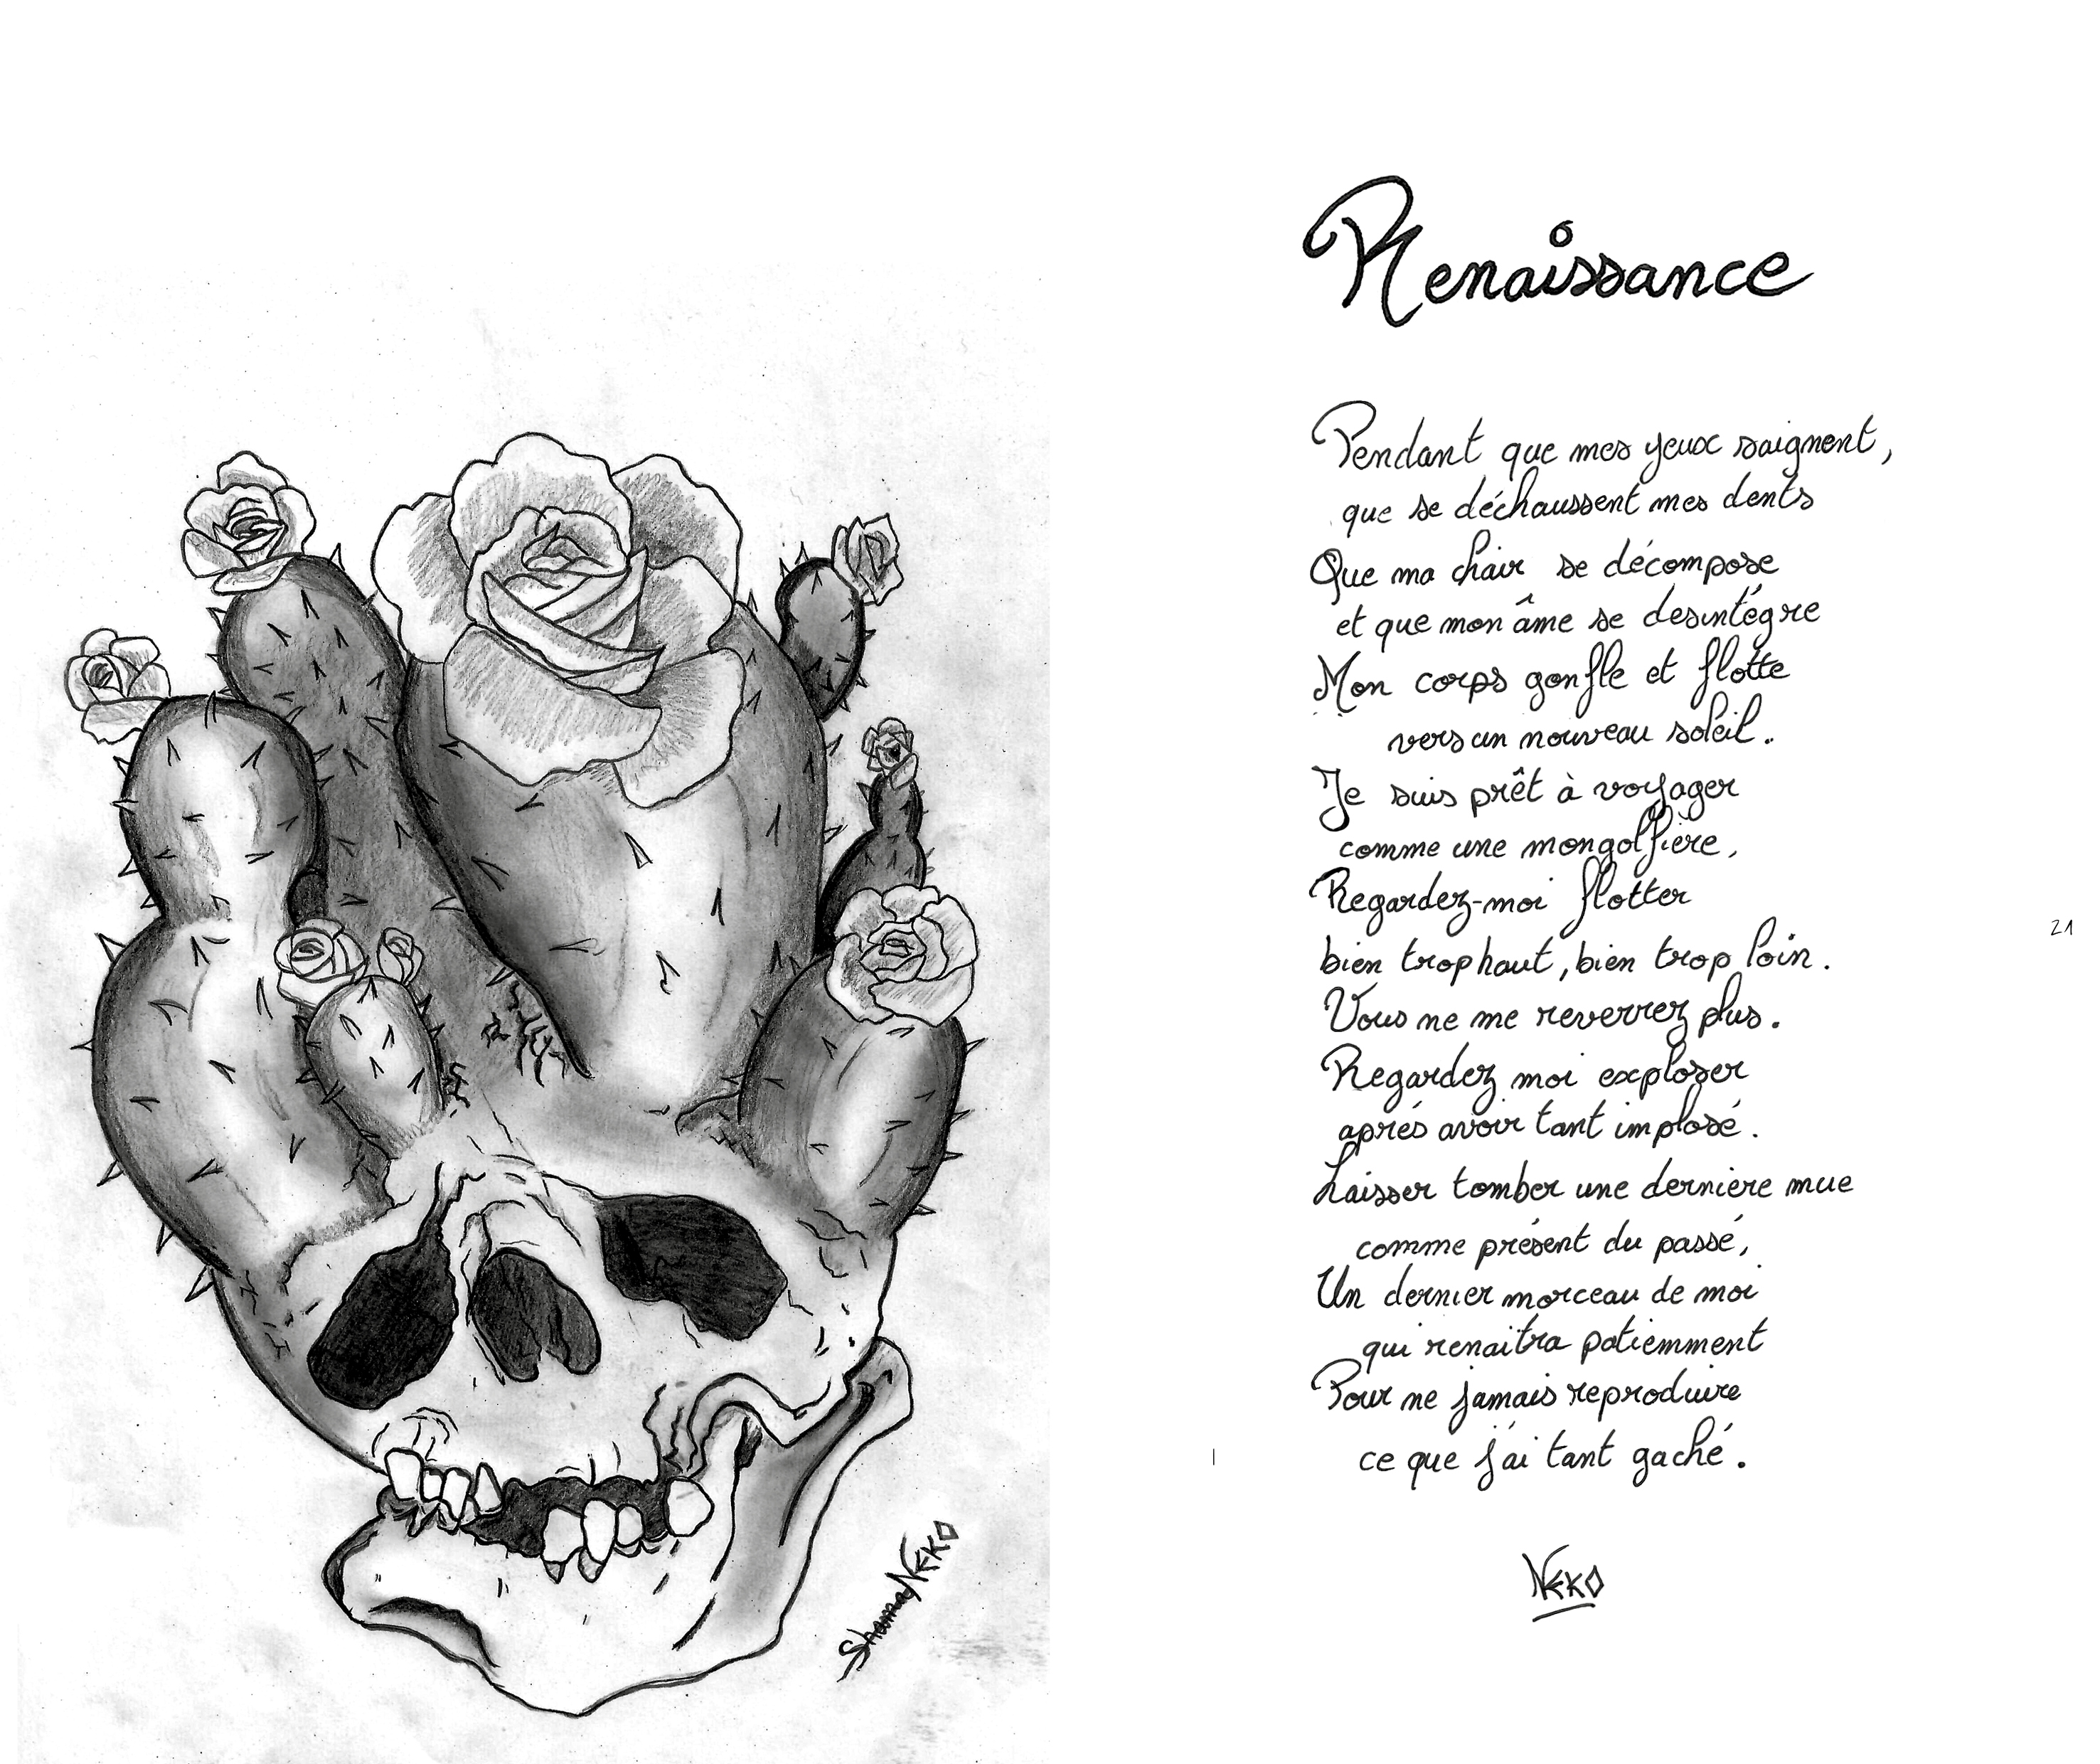 Renaissance
Pendant que mes yeux saignent,
que se déchaussent mes dents
Que ma chair se décompose
et que mon âme se desintégre
Mon corps gonfle et flotte
vers un nouveau soleil.
Je suis prêt à voyager
comme une mongolfière,
Regardez-moi flotter
bien trop haut, bien trop loin.
Vous ne me reverrez plus.
Regardez moi exploser
aprés avoir tant implosé.
Laisser tomber une dernière mue
comme présent du passé,
Un dernier morceau de moi
qui renaitra patiemment
Pour ne jamais reproduire
ce que j'ai tant gaché.
NEKO
ShamaNEKO
21